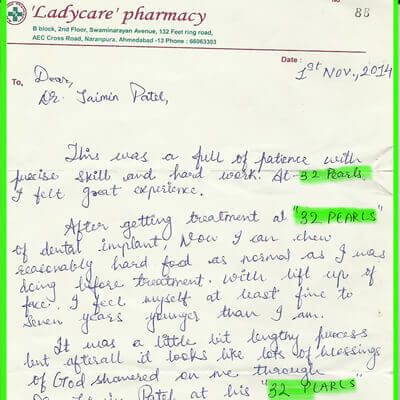 No
88
'Ladycare' pharmacy
B block, 2nd Floor, Swaminarayan Avenue, 132 Feet ring road,
AEC Cross Road, Naranpura, Ahmedabad -13 Phone : 66063303
Date :
1st Nov., 2014
To,
Dear,
Dr. Jaimin Patel,
This was a full of patience with
precise skill and hard work. At 32 Pearls.
I felt great experience.
After getting treatment at "32 PEARLS"
of dental implant, Now I can chew
reasonably hard food as normal as I was
doing before treatment. With lift up of
face. I feel myself at least five to
seven years younger than I am.
It was a little bit lengthy process
but afterall it looks like lots of blessings
of God showered on me through
Patel at his "32 PEARLS"